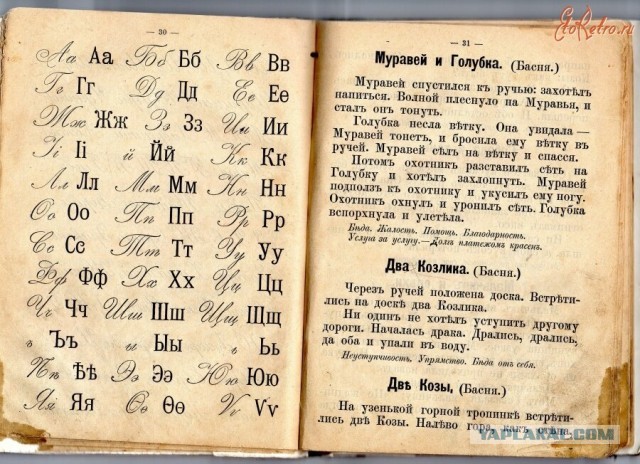 EtoRetro.ru
— 30 —
Аа Аа Бб Бб Вв Вв
Гг Гг Дд Дд Ее Ее
Жж Жж Зз Зз Ии Ии
Іі Іі й Йй Кк Кк
Лл Лл Мм Мм Нн Нн
Оо Оо Пп Пп Рр Рр
Сс Сс Тт Тт Уу Уу
Фф Фф Хх Хх Цц Цц
Чч Чч Шш Шш Щщ Щщ
ъ Ъъ ы Ыы ь Ьь
Ѣѣ Ѣѣ Ээ Ээ Юю Юю
Яя Яя Ѳѳ Ѳѳ Ѵѵ Ѵѵ
— 31 —
Муравей и Голубка. (Басня.)
Муравей спустился къ ручью: захотѣлъ
напиться. Волной плеснуло на Муравья, и
сталъ онъ тонуть.
Голубка несла вѣтку. Она увидала —
Муравей тонетъ, и бросила ему вѣтку въ
ручей. Муравей сѣлъ на вѣтку и спасся.
Потомъ охотникъ разставилъ сѣть на
Голубку и хотѣлъ захлопнуть. Муравей
подползъ къ охотнику и укусилъ ему ногу.
Охотникъ охнулъ и уронилъ сѣть. Голубка
вспорхнула и улетѣла.
Бѣда. Жалость. Помощь. Благодарность.
Услуга за услугу.—Долгъ платежомъ красенъ.
Два Козлика. (Басня.)
Черезъ ручей положена доска. Встрѣти-
лись на доскѣ два Козлика.
Ни одинъ не хотѣлъ уступить другому
дороги. Началась драка. Дрались, дрались,
да оба и упали въ воду.
Неуступчивость. Упрямство. Бѣда отъ себя.
Двѣ Козы, (Басня.)
На узенькой горной тропинкѣ встрѣти-
лись двѣ Козы. Налѣво гора, какъ стѣна,
YAPLAKAL.COM